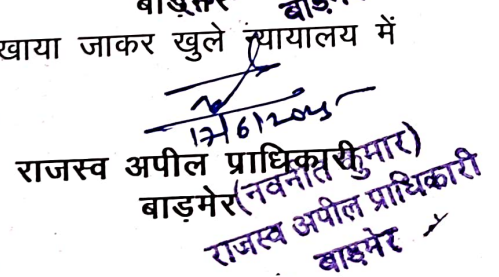 बाड़मेर बाड़मेर
खाया जाकर खुले न्यायालय में
17/6/2025
राजस्व अपील प्राधिकारी
बाड़मेर (नवनीत कुमार)
राजस्व अपील प्राधिकारी
बाड़मेर